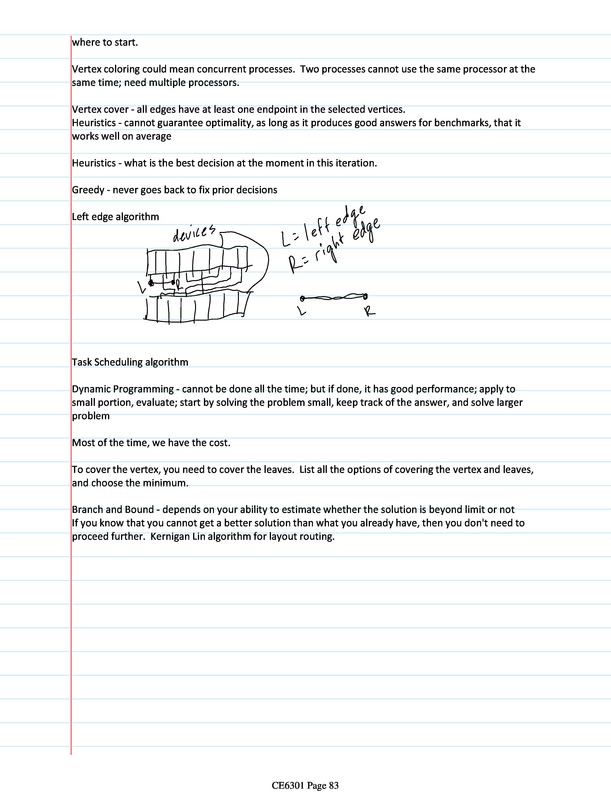 where to start.
Vertex coloring could mean concurrent processes.  Two processes cannot use the same processor at the
same time; need multiple processors.
Vertex cover - all edges have at least one endpoint in the selected vertices.
Heuristics - cannot guarantee optimality, as long as it produces good answers for benchmarks, that it
works well on average
Heuristics - what is the best decision at the moment in this iteration.
Greedy - never goes back to fix prior decisions
Left edge algorithm
devices
L = left edge
R = right edge
L R
L R
Task Scheduling algorithm
Dynamic Programming - cannot be done all the time; but if done, it has good performance; apply to
small portion, evaluate; start by solving the problem small, keep track of the answer, and solve larger
problem
Most of the time, we have the cost.
To cover the vertex, you need to cover the leaves.  List all the options of covering the vertex and leaves,
and choose the minimum.
Branch and Bound - depends on your ability to estimate whether the solution is beyond limit or not
If you know that you cannot get a better solution than what you already have, then you don't need to
proceed further.  Kernigan Lin algorithm for layout routing.
CE6301 Page 83